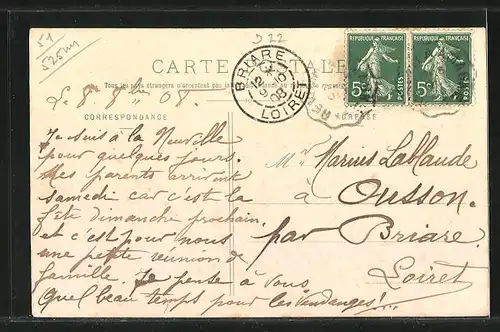 S1
525um
J 22
CARTE POSTALE
Tous les pays étrangers n'acceptent pas
BRIARE
LOIRET
08
REPUBLIQUE FRANÇAISE
5c POSTES
REPUBLIQUE FRANÇAISE
5c POSTES
L. 8 8bre 08.
CORRESPONDANCE
ADRESSE
Je suis à la Neuville
pour quelques jours.
Mes parents arrivent
samedi car c'est la
fête dimanche prochain,
et c'est pour nous
une petite réunion de
famille. Je pense à vous
Quel beau temps pour les vendanges!
Mr Marius Lablaude
à Ousson.
par Briare.
Loiret